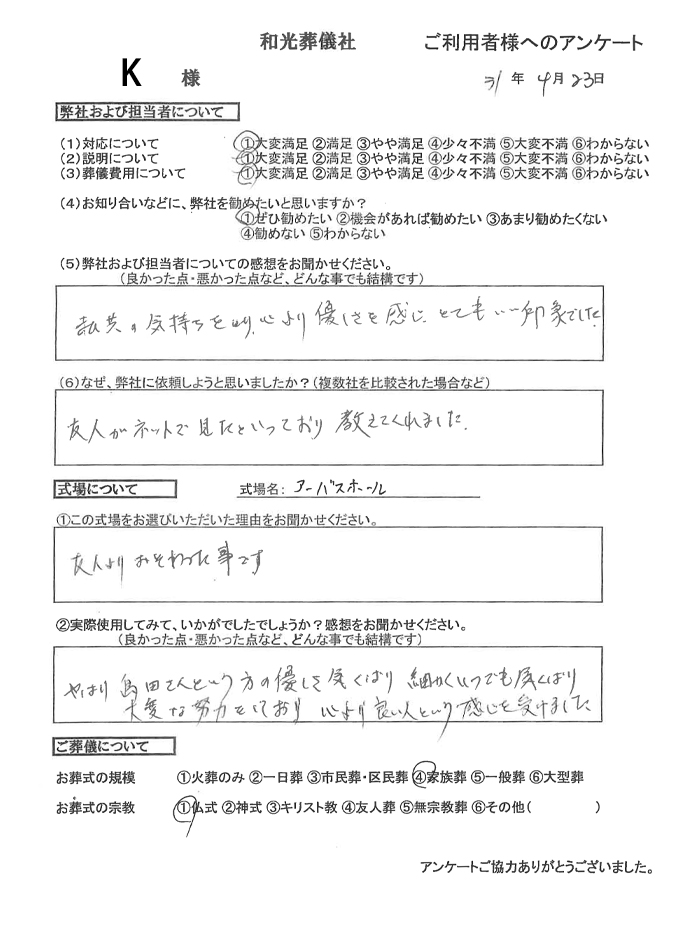 和光葬儀社
ご利用者様へのアンケート
K 様
31年 4月23日
弊社および担当者について
(1)対応について ①大変満足 ②満足 ③やや満足 ④少々不満 ⑤大変不満 ⑥わからない
(2)説明について ①大変満足 ②満足 ③やや満足 ④少々不満 ⑤大変不満 ⑥わからない
(3)葬儀費用について ①大変満足 ②満足 ③やや満足 ④少々不満 ⑤大変不満 ⑥わからない
(4)お知り合いなどに、弊社を勧めたいと思いますか?
①ぜひ勧めたい ②機会があれば勧めたい ③あまり勧めたくない
④勧めない ⑤わからない
(5)弊社および担当者についての感想をお聞かせください。
(良かった点・悪かった点など、どんな事でも結構です)
私共の気持ちを 心より優しさを感じ とても いい印象でした
(6)なぜ、弊社に依頼しようと思いましたか?(複数社を比較された場合など)
友人がネットで見たといっており 教えてくれました.
式場について
式場名: アーバスホール
①この式場をお選びいただいた理由をお聞かせください。
友人より おそわった事です
②実際使用してみて、いかがでしたでしょうか?感想をお聞かせください。
(良かった点・悪かった点など、どんな事でも結構です)
やはり 島田さんという方の優しさ 気くばり 細かくいつでも気くばり
大変な努力をしており 心より良い人という感じを受けました
ご葬儀について
お葬式の規模 ①火葬のみ ②一日葬 ③市民葬・区民葬 ④家族葬 ⑤一般葬 ⑥大型葬
お葬式の宗教 ①仏式 ②神式 ③キリスト教 ④友人葬 ⑤無宗教葬 ⑥その他( )
アンケートご協力ありがとうございました。